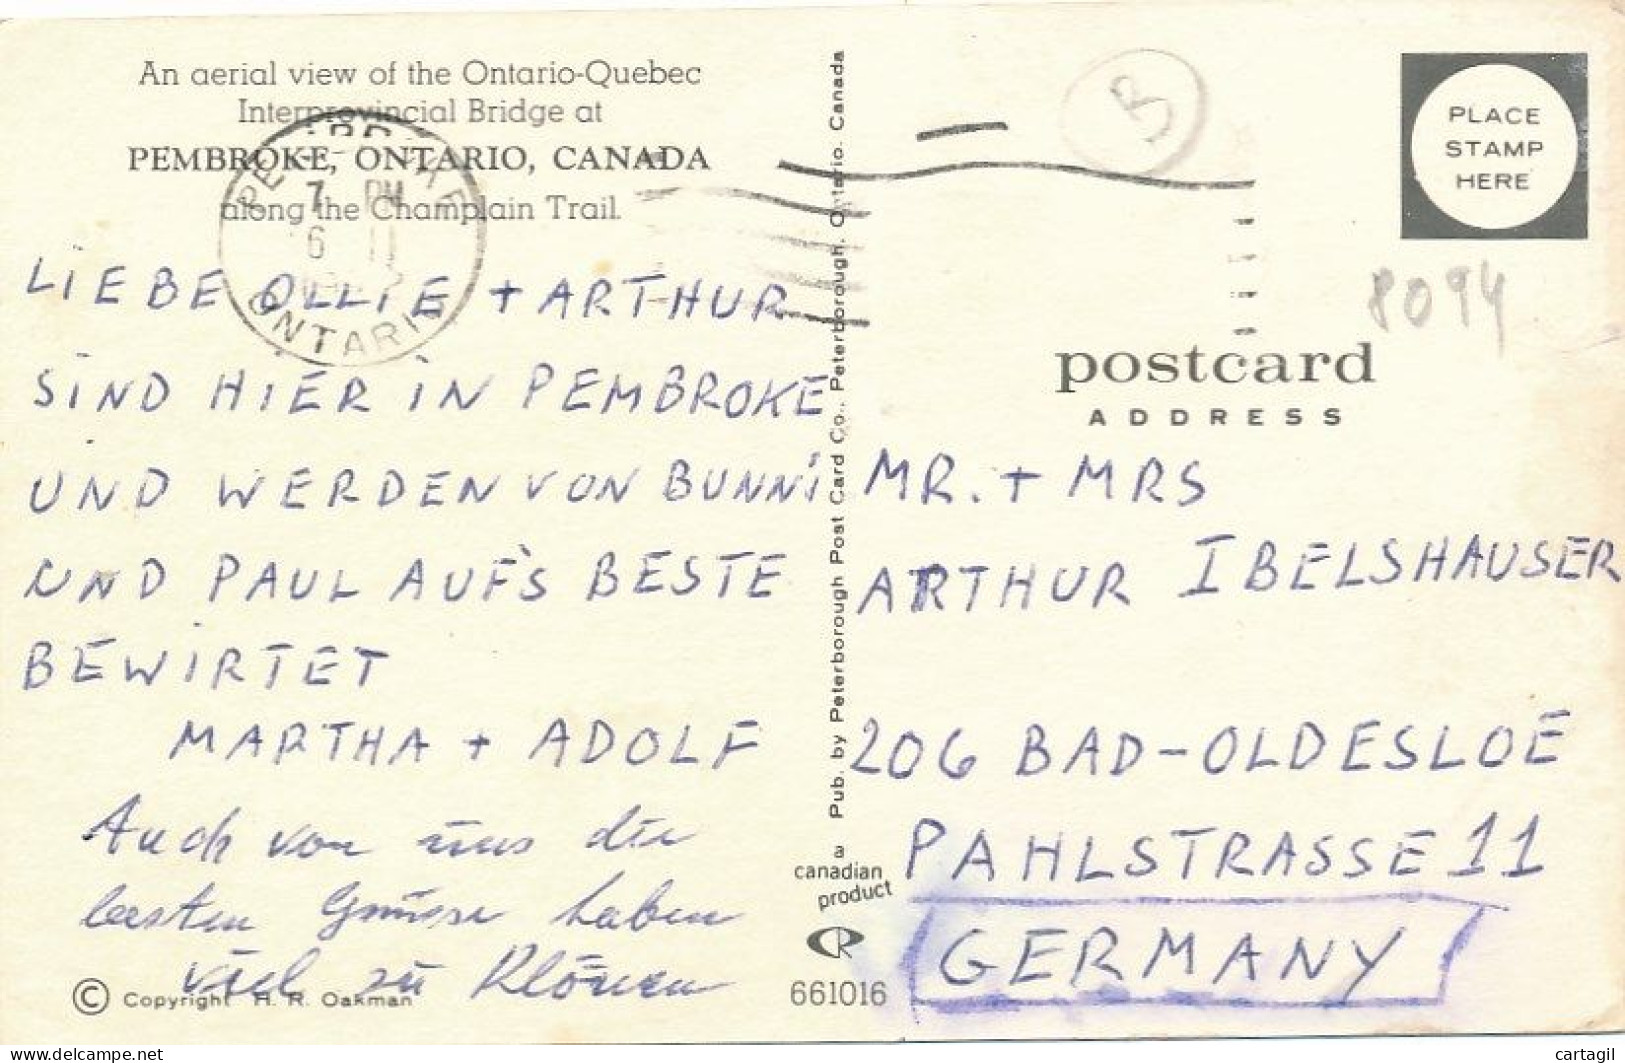 An aerial view of the Ontario-Quebec
Interprovincial Bridge at
PEMBROKE, ONTARIO, CANADA
along the Champlain Trail.
PEMBROKE
7 PM
6 II
ONTARIO
LIEBE OLLIE + ARTHUR
SIND HIER IN PEMBROKE
UND WERDEN VON BUNNI
UND PAUL AUF'S BESTE
BEWIRTET
MARTHA + ADOLF
Auch von uns die
besten Grüsse haben
viel zu Klönen
© Copyright H. R. Oakman
Pub. by Peterborough Post Card Co., Peterborough, Ontario, Canada
a
canadian
product
CR
661016
B
PLACE
STAMP
HERE
8094
postcard
ADDRESS
MR. + MRS
ARTHUR IBELSHAUSER
206 BAD-OLDESLOE
PAHLSTRASSE 11
GERMANY
cartagil